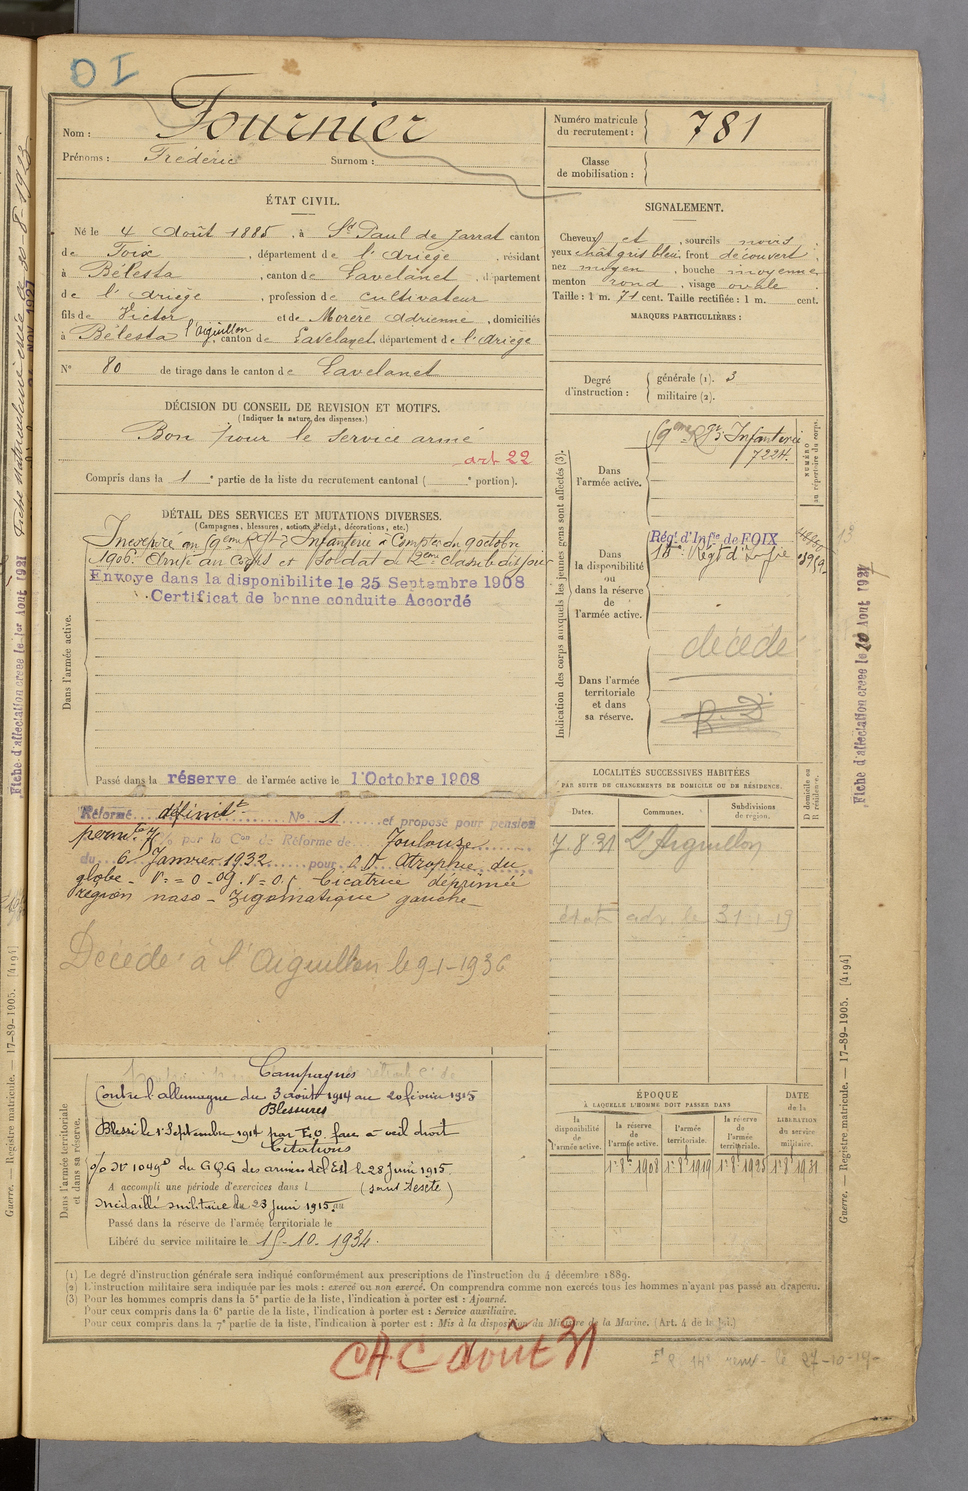 OI
Nom : Fournier
Prénoms : Frédéric Surnom :
Numéro matricule du recrutement : 781
Classe de mobilisation :
ÉTAT CIVIL.
Né le 4 Août 1885, à St Paul de Jarrat canton
de Foix, département de l'Ariège, résidant
à Bélesta, canton de Lavelanet, département
de l'Ariège, profession de cultivateur
fils de Victor et de Morère Adrienne, domiciliés
à Bélesta l'Aiguillon, canton de Lavelanet, département de l'Ariège
N° 80 de tirage dans le canton de Lavelanet
DÉCISION DU CONSEIL DE REVISION ET MOTIFS.
(Indiquer la nature des dispenses.)
Bon pour le service armé
art 22
Compris dans la 1e partie de la liste du recrutement cantonal ( e portion).
SIGNALEMENT.
Cheveux et, sourcils noirs ;
yeux chât gris bleu. front découvert ;
nez moyen, bouche moyenne ;
menton rond, visage ovale.
Taille : 1 m. 71 cent. Taille rectifiée : 1 m. cent.
MARQUES PARTICULIÈRES :
Degré d'instruction :
générale (1). 3
militaire (2).
DÉTAIL DES SERVICES ET MUTATIONS DIVERSES.
(Campagnes, blessures, actions d'éclat, décorations, etc.)
Incorporé au 59eme Regt d'Infanterie à Compter du 9 octobre
1906. Arrivé au Corps et Soldat de 2eme classe le dit jour
Envoyé dans la disponibilite le 25 Septembre 1908
Certificat de bonne conduite Accordé
Dans l'armée active.
Passé dans la réserve de l'armée active le 1 Octobre 1908
Indication des corps auxquels les jeunes gens sont affectés (3).
Dans l'armée active.
59eme Rgt d'Infanterie
7224.
NUMÉRO au répertoire du corps.
Dans la disponibilité ou dans la réserve de l'armée active.
Rég. d'Infie de FOIX
Dans l'armée territoriale et dans sa réserve.
décédé
R.D
Réformé définitt N° 1 et proposé pour pension
perm. par la Con de Réforme de Toulouse
du 6 Janvier 1932 pour Atrophie du
globe Cicatrice déprimée
région naso-zigomatique gauche
Décédé à l'Aiguillon le 9-1-1936
LOCALITÉS SUCCESSIVES HABITÉES
PAR SUITE DE CHANGEMENTS DE DOMICILE OU DE RÉSIDENCE.
Dates. Communes. Subdivisions de région. D domicile ou R résidence.
7.8.31 L'Aiguillon
Dans l'armée territoriale et dans sa réserve.
Campagnes
Contre l'allemagne du 3 août 1914 au 20 février 1915
Blessures
Blessé le 1 Septembre 1914 par E.O. face a œil droit
Citations
O/O N° 1049D du G.Q.G des armées de l'Est le 28 Juin 1915.
A accompli une période d'exercices dans l
médaillé militaire du 23 Juin 1915. au
Passé dans la réserve de l'armée territoriale le
Libéré du service militaire le 15-10-1934.
ÉPOQUE
À LAQUELLE L'HOMME DOIT PASSER DANS
la disponibilité de l'armée active.
la réserve de l'armée active.
l'armée territoriale.
la réserve de l'armée territoriale.
DATE de la LIBÉRATION du service militaire.
1er 8bre 1908 1er 8bre 1919 1er 8bre 1925 1er 8bre 1931
(1) Le degré d'instruction générale sera indiqué conformément aux prescriptions de l'instruction du 4 décembre 1889.
(2) L'instruction militaire sera indiquée par les mots : exercé ou non exercé. On comprendra comme non exercés tous les hommes n'ayant pas passé au drapeau.
(3) Pour les hommes compris dans la 5e partie de la liste, l'indication à porter est : Ajourné.
Pour ceux compris dans la 6e partie de la liste, l'indication à porter est : Service auxiliaire.
Pour ceux compris dans la 7e partie de la liste, l'indication à porter est : Mis à la disposition du Ministre de la Marine. (Art. 4 de la loi.)
CAC août 31
le 27-10-19
Guerre. — Registre matricule. — 17-89-1905. [4194]
Fiche d'affectation creee le 20 Aout 1927
Guerre. — Registre matricule. — 17-89-1905. [4194]
Fiche d'affectation creee le 1er Aout 1921